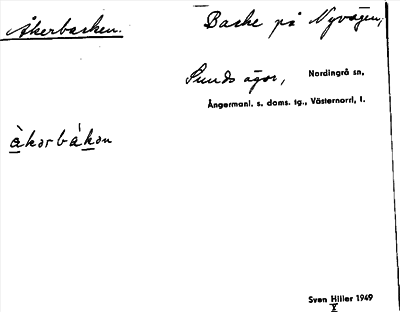 Åkerbacken.
Backe på Nyvägen,
Sunds ägor,
Nordingrå sn,
Ångermanl. s. doms. tg., Västernorrl. l.
àkərbàkən
Sven Hiller 1949
X